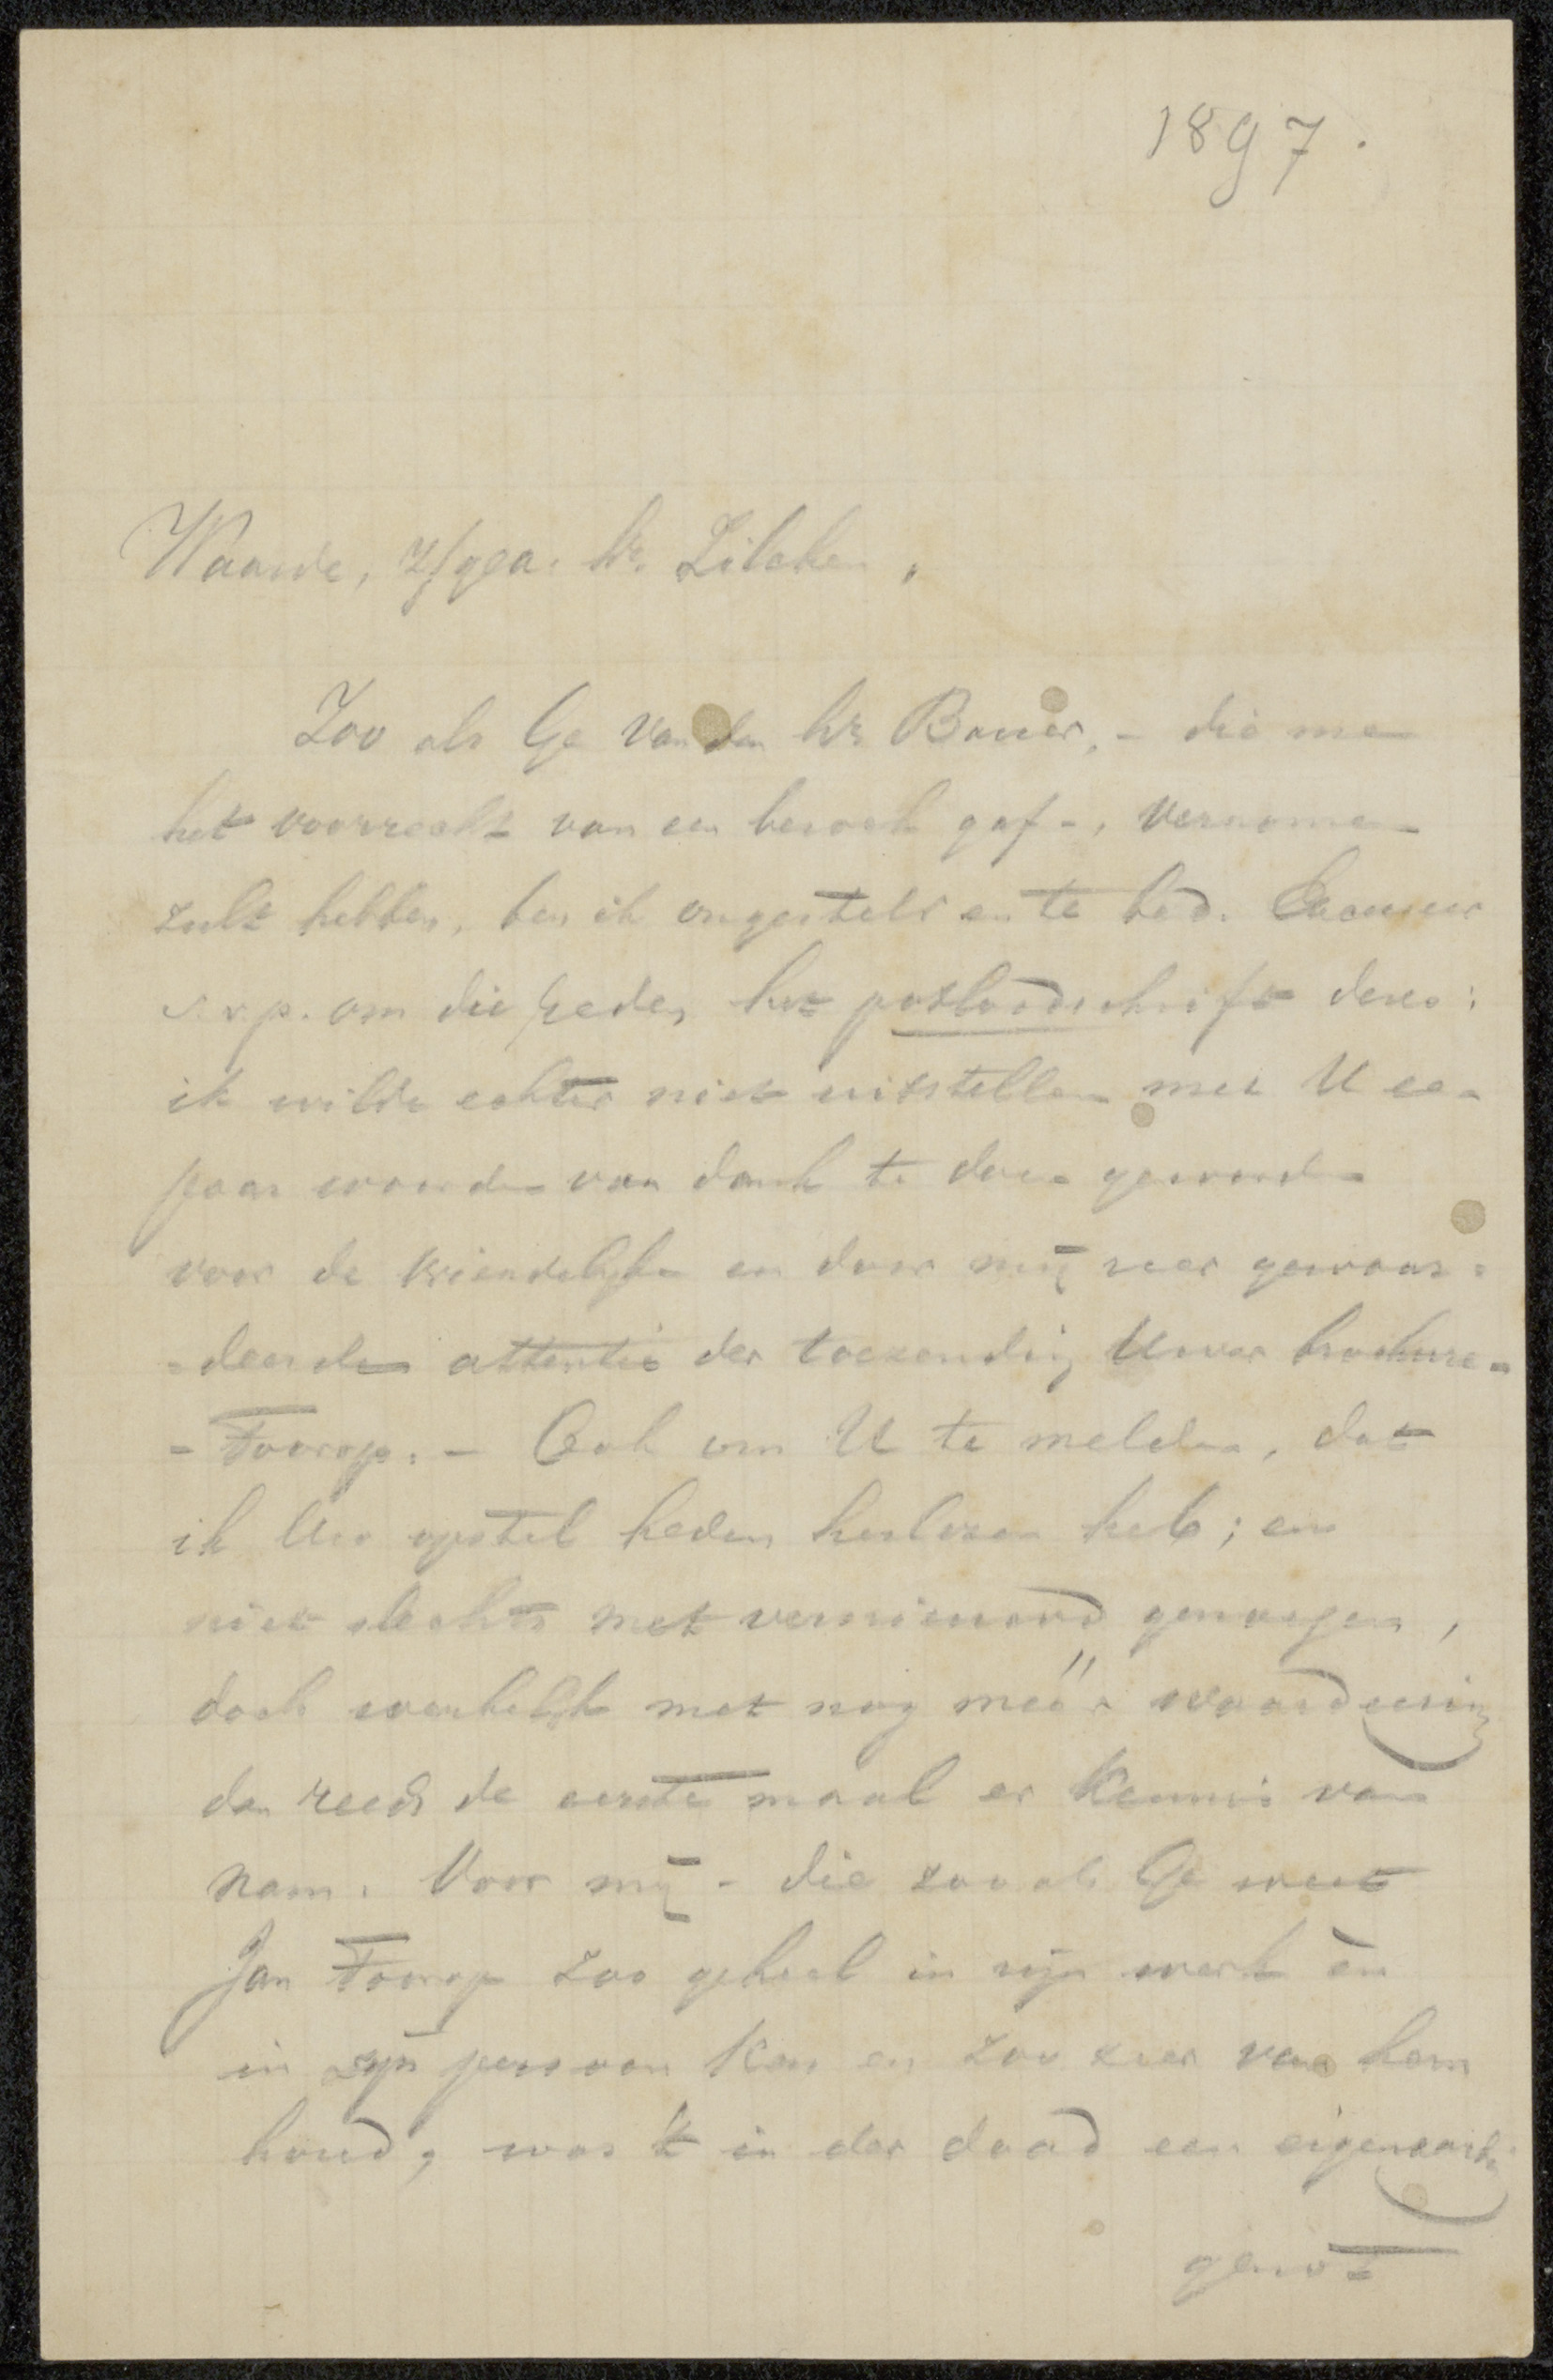 1897.
Waarde, z/gea. hr. Zilcken,
Zoo als Ge van den hr Bauer, - die me
het voorrecht van een bezoek gaf -, vernomen
zult hebben, ben ik ongesteld en te bed. Excuseer
s.v.p. om die reden het potloodschrift dezes:
ik wilde echter niet uitstellen met U een
paar woorden van dank te doen geworden
voor de vriendelijke en door mij zeer gewaar=
=deerde attentie der toezending Uwer brochure=
=Toorop. - Ook om U te melden, dat
ik Uw opstel heden herlezen heb; en
niet slechts met vernieuwd genoegen,
doch werkelijk met nog méér waardeering
dan reeds de eerste maal er kennis van
nam. Voor mij - die zooals Ge weet
Jan Toorop zoo geheel in zijn werk èn
in zijn persoon ken en zoo zeer van hem
houd, was 't in der daad een eigenaardig
genot